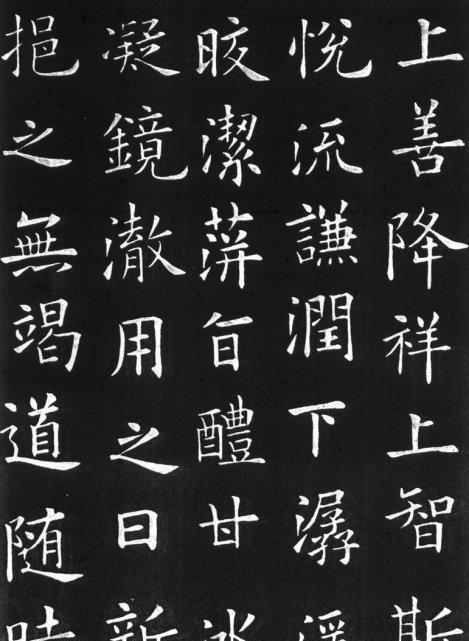 上善降祥上智斯
悅流謙潤下潺湲
晈潔蓱旨醴甘冰
凝鏡澈用之日新
挹之無竭道随時